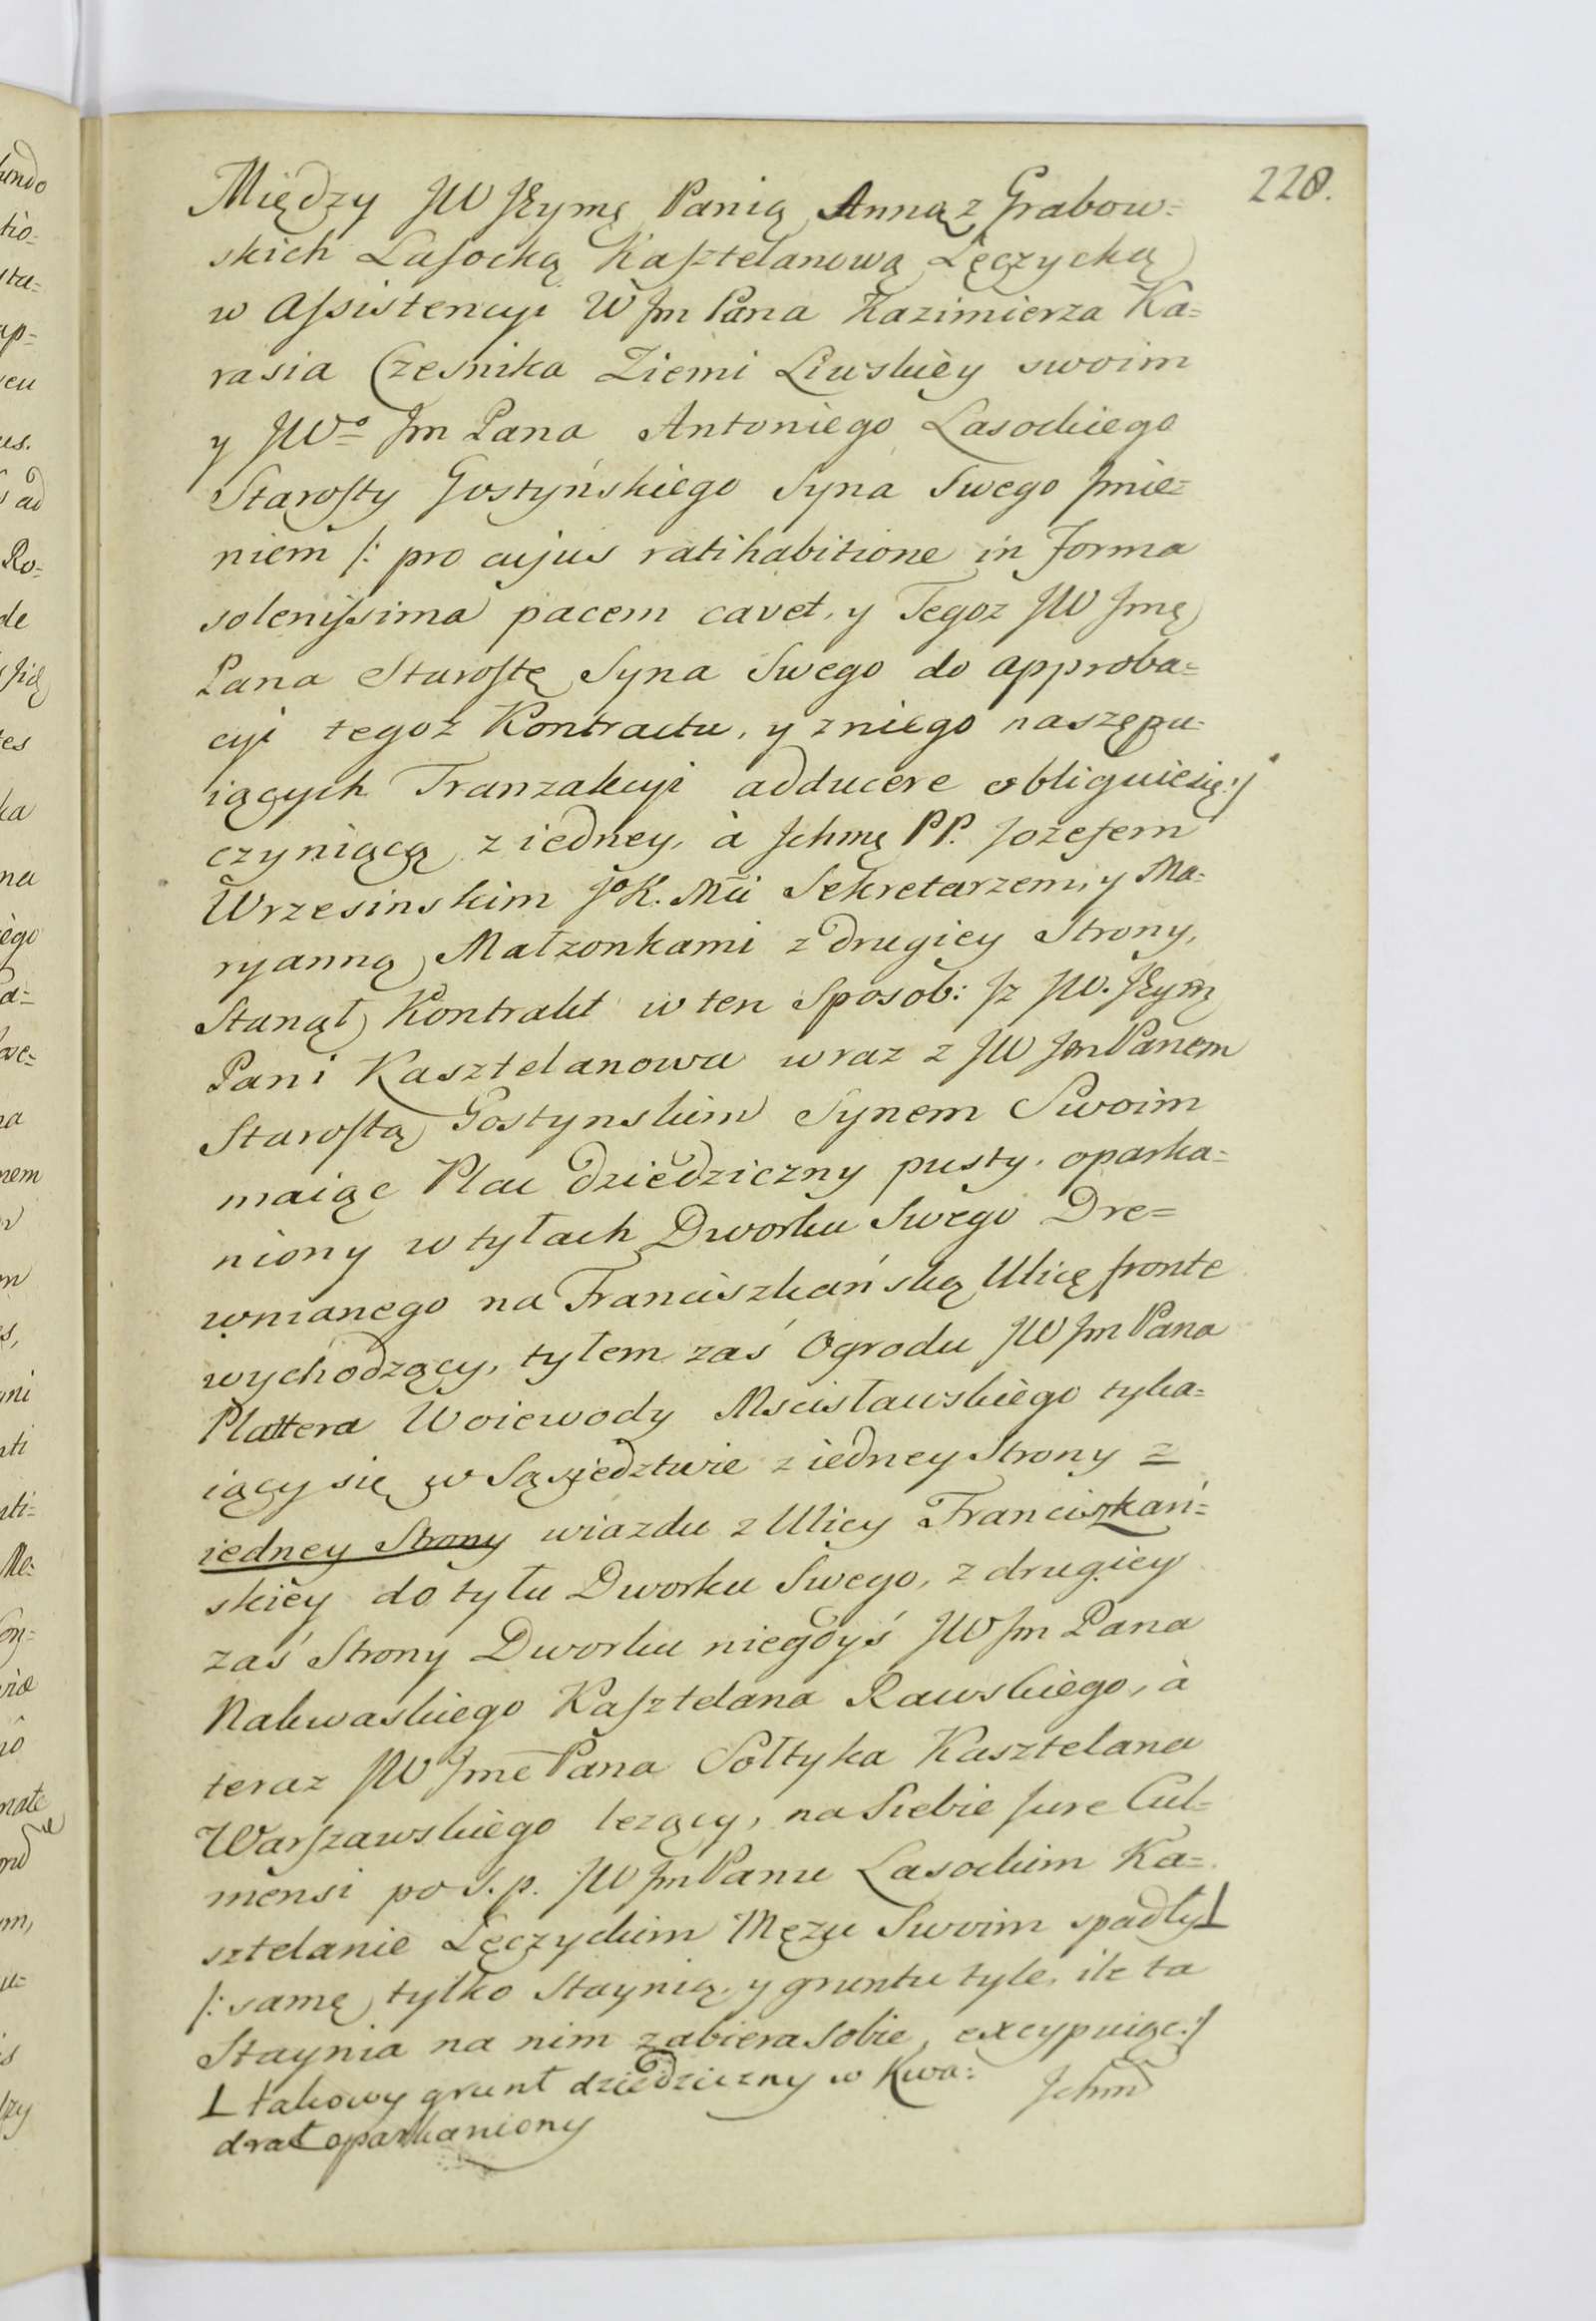 228.
Między JW JEymę Panią Anną z Grabow=
skich Lasocką Kasztelanową Łęczycką
w Assistencyi W Jm Pana Kazimierza Ka=
rasia Czesnika Ziemi Liwskiéy swoim
y JWo Jm Pana Antoniego Lasockiego
Starosty Gostyńskiego Syna Swego Jmie=
niem /: pro cujus ratihabitione in Forma
solenissima pacem cavet, y Tegoz JW Jmę
Pana Starostę Syna Swego do approba=
cyi tegoż Kontractu, y z niego naszępu=
iących Tranzakcyi adducere obliguie się :/
czyniącą z iedney, à Jchmę PP. Jozefem
Wrzesinskim JoK. Mci Sekretarzem, y Ma=
ryanną Małzonkami z drugiey Strony,
Stanął Kontrakt w ten Sposob: Jz JW. JEymę
Pani Kasztelanowa wraz z JW JmPanem
Starostą Gostynskim Synem Swoim
maiąc Plac dziedziczny pusty, oparka=
niony w tyłach Dworku Swego Dre=
wnianego na Franciszkańską Ulicę fronte
wychodzący, tyłem zaś Ogrodu JW Jm Pana
Plattera Woiewody Mscisławskiego tyka=
iący się w Sąsiedztwie z iedney Strony z
iedney Strony wiazdu z Ulicy Franciszkań=
skiéy do tyłu Dworku Swego, z drugiey
zaś Strony Dworku niegdyś JW Jm Pana
Nakwaskiego Kasztelana Rawskiego, à
teraz JW Jmc Pana Sołtyka Kasztelana
Warszawskiego lezący, na Siebie Jure Cul=
mensi po S. p. JW JmPanu Lasockim Ka=
sztelanie Łęczyckim Mężu Swoim spadły⊥
/: samę tylko Staynią, y gruntu tyle, ile ta
Staynia na nim zabiera sobie, excypuiąc :/
⊥ takowy grunt dziedziczny w Kwa= Jchm
drat oparkaniony